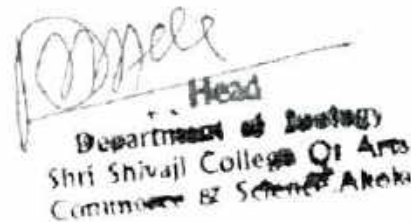 Head
Department of Zoology
Shri Shivaji College Of Arts
Commerce & Science Akola